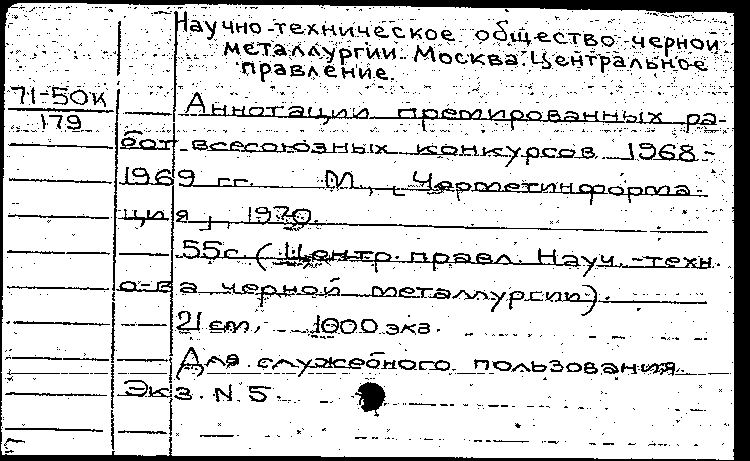 Научно-техническое общество черной
металлургии. Москва. Центральное
правление.
71-50к
179
Аннотации премированных ра-
бот всесоюзных конкурсов 1968-
1969 гг. М., [Черметинформа-
ция], 1970.
55с. (Центр. правл. Науч.-техн.
о-ва черной металлургии).
21 см. 1000 экз.
Для служебного пользования.
Экз. N 5.